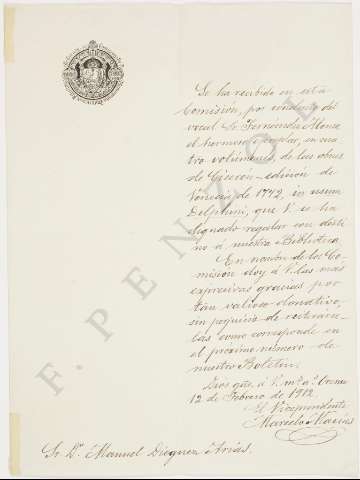 Se ha recibido en esta
Comisión, por conducto del
vocal Sr. Fernández Alonso
el hermoso ejemplar, en cua
tro volúmenes, de las obras
de Ciceron - edición de
Venecia de 1772, in usum
Delphini, que V. se ha
dignado regalar con desti
no á nuestra Biblioteca.
En nombre de la Co-
misión doy á V. las más
expresivas gracias por
tan valioso donativo,
sin perjuicio de reiterárse-
las como corresponde en
el próximo número de
nuestro Boletín.
Dios gde. á V. ms. as. Orense
12 de Febrero de 1912.
El Vicepresidente
Marcelo Macías
Sr. Dn. Manuel Dieguez Arias.
F. PENZOL